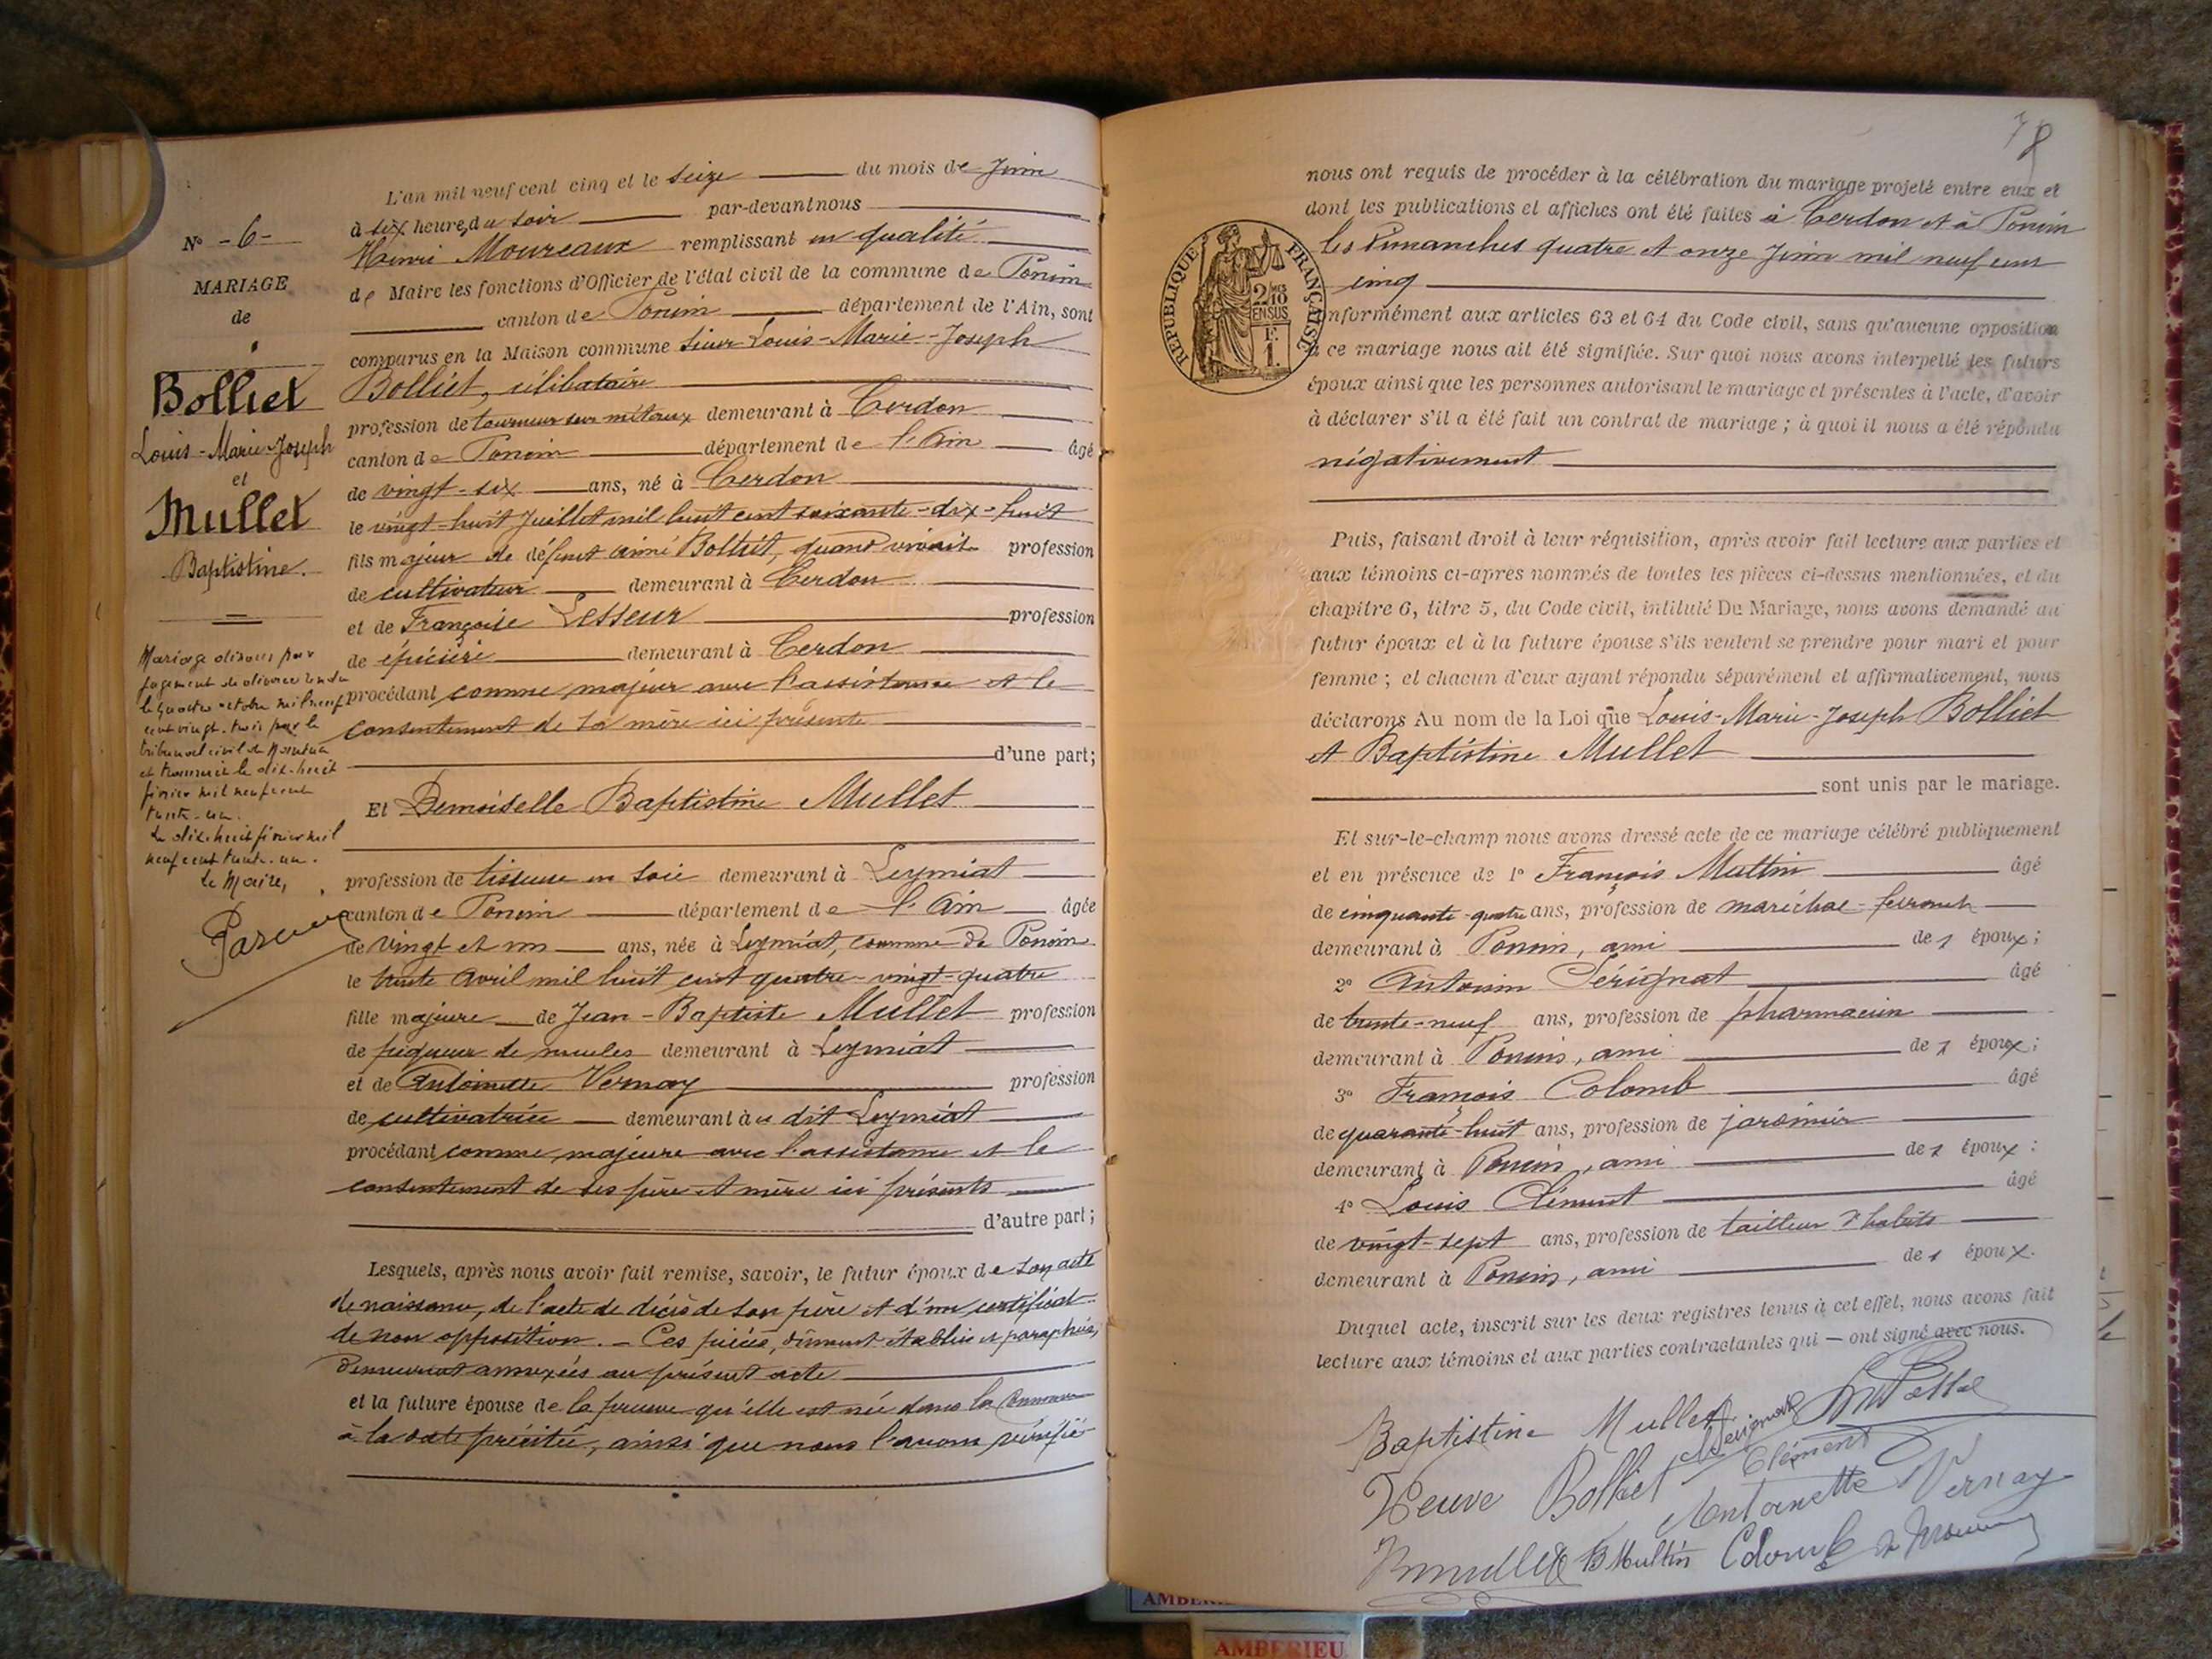 N° - 6 -
MARIAGE
de
Bolliet
Louis-Marie-Joseph
et
Mullet
Baptistine.
Mariage dissous par
jugement de divorce rendu
le quatre octobre mil neuf
cent vingt-trois par le
tribunal civil de Nantua
et transcrit le dix-huit
février mil neuf cent
trente-un.
Le dix-huit février mil
neuf cent trente-un.
Le Maire,
L'an mil neuf cent cinq et le seize du mois de Juin
à six heures du soir par-devant nous
Henri Moureaux remplissant en qualité
de Maire les fonctions d'Officier de l'état civil de la commune de Poncin
canton de Poncin département de l'Ain, sont
comparus en la Maison commune sieur Louis-Marie-Joseph
Bolliet, célibataire
profession de tourneur sur métaux demeurant à Cerdon
canton de Poncin département de l'Ain âgé
de vingt-six ans, né à Cerdon
le vingt-huit Juillet mil huit cent soixante-dix-huit
fils majeur de défunt Aimé Bolliet, quand vivait profession
de cultivateur demeurant à Cerdon
et de Françoise Lesseur profession
de épicière demeurant à Cerdon
procédant comme majeur avec l'assistance et le
consentement de sa mère ici présente
d'une part;
Et Demoiselle Baptistine Mullet
profession de tisseuse en soie demeurant à Leymiat
canton de Poncin département de l'Ain âgée
de vingt et un ans, née à Leymiat, commune de Poncin
le trente Avril mil huit cent quatre-vingt-quatre
fille majeure de Jean-Baptiste Mullet profession
de piqueur de meules demeurant à Leymiat
et de Antoinette Vernay profession
de cultivatrice demeurant au dit Leymiat
procédant comme majeure avec l'assistance et le
consentement de ses père et mère ici présents
d'autre part;
Lesquels, après nous avoir fait remise, savoir, le futur époux de son acte
de naissance, de l'acte de décès de son père et d'un certificat
de non opposition. - Ces pièces, dûment établies et paraphées,
demeurent annexées au présent acte
et la future épouse de la preuve qu'elle est née dans la commune
à la date précitée, ainsi que nous l'avons vérifié
78
nous ont requis de procéder à la célébration du mariage projeté entre eux et
dont les publications et affiches ont été faites à Cerdon et à Poncin
les Dimanches quatre et onze Juin mil neuf cent
cinq
RÉPUBLIQUE FRANÇAISE
2/10 EN SUS
1 F.
conformément aux articles 63 et 64 du Code civil, sans qu'aucune opposition
à ce mariage nous ait été signifiée. Sur quoi nous avons interpellé les futurs
époux ainsi que les personnes autorisant le mariage et présentes à l'acte, d'avoir
à déclarer s'il a été fait un contrat de mariage; à quoi il nous a été répondu
négativement
Puis, faisant droit à leur réquisition, après avoir fait lecture aux parties et
aux témoins ci-après nommés de toutes les pièces ci-dessus mentionnées, et du
chapitre 6, titre 5, du Code civil, intitulé Du Mariage, nous avons demandé au
futur époux et à la future épouse s'ils veulent se prendre pour mari et pour
femme; et chacun d'eux ayant répondu séparément et affirmativement, nous
déclarons Au nom de la Loi que Louis-Marie-Joseph Bolliet
et Baptistine Mullet
sont unis par le mariage.
Et sur-le-champ nous avons dressé acte de ce mariage célébré publiquement
et en présence de 1° François Muttin âgé
de cinquante-quatre ans, profession de maréchal-ferrant
demeurant à Poncin, ami de s époux;
2° Antonin Sérignat âgé
de trente-neuf ans, profession de pharmacien
demeurant à Poncin, ami de s époux;
3° François Colomb âgé
de quarante-huit ans, profession de jardinier
demeurant à Poncin, ami de s époux;
4° Louis Clément âgé
de vingt-sept ans, profession de tailleur d'habits
demeurant à Poncin, ami de s époux.
Duquel acte, inscrit sur les deux registres tenus à cet effet, nous avons fait
lecture aux témoins et aux parties contractantes qui — ont signé avec nous.
Baptistine Mullet
Clément
Veuve Bolliet
Antoinette Vernay
Colomb
AMBERIEU